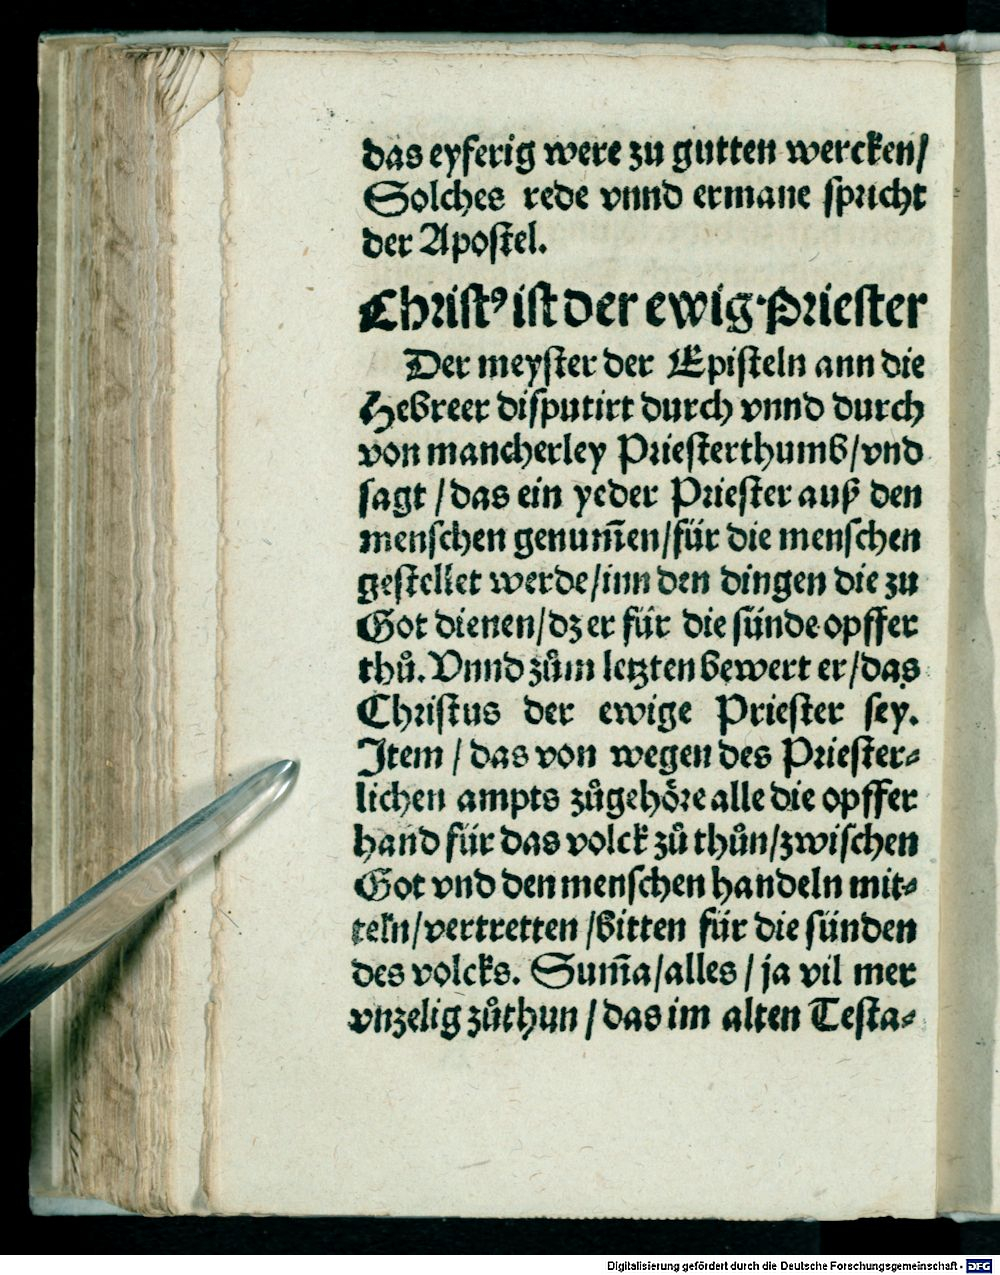 das eyferig were zu gutten wercken/
Solches rede vnnd ermane spricht
der Apostel.
Christꝰ ist der ewig Priester
Der meyster der Episteln ann die
Hebreer disputirt durch vnnd durch
von mancherley Priesterthumb/vnd
sagt / das ein yeder Priester auß den
menschen genum̄en/für die menschen
gestellet werde/inn den dingen die zu
Got dienen/dz er für die sünde opffer
thů. Vnnd zům letzten bewert er/das
Christus der ewige Priester sey.
Item / das von wegen des Priester⸗
lichen ampts zůgehöre alle die opffer
hand für das volck zů thůn/zwischen
Got vnd den menschen handeln mit⸗
teln/vertretten /bitten für die sünden
des volcks. Sum̄a/alles / ja vil mer
vnzelig zůthun / das im alten Testa⸗
Digitalisierung gefördert durch die Deutsche Forschungsgemeinschaft - DFG